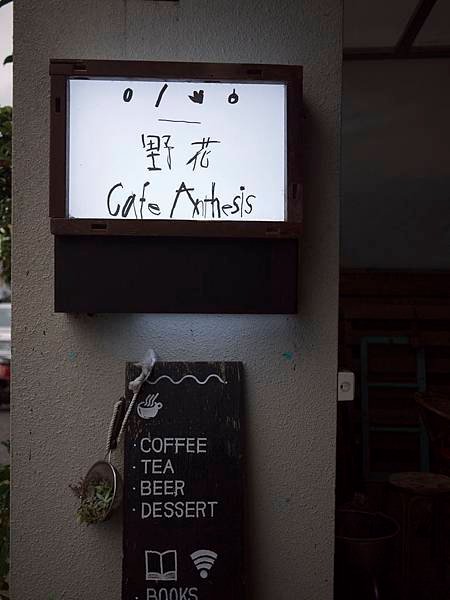 野花
Cafe Anthesis
· COFFEE
· TEA
· BEER
· DESSERT
· BOOKS